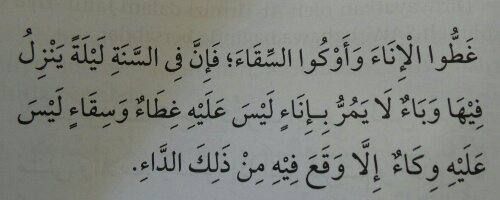 غَطُّوا الْإِنَاءَ وَأَوْكُوا السِّقَاءَ؛ فَإِنَّ فِى السَّنَةِ لَيْلَةً يَنْزِلُ
فِيْهَا وَبَاءٌ لَا يَمُرُّ بِإِنَاءٍ لَيْسَ عَلَيْهِ غِطَاءٌ وَسِقَاءٍ لَيْسَ
عَلَيْهِ وِكَاءٌ إِلَّا وَقَعَ فِيْهِ مِنْ ذَلِكَ الدَّاءِ.